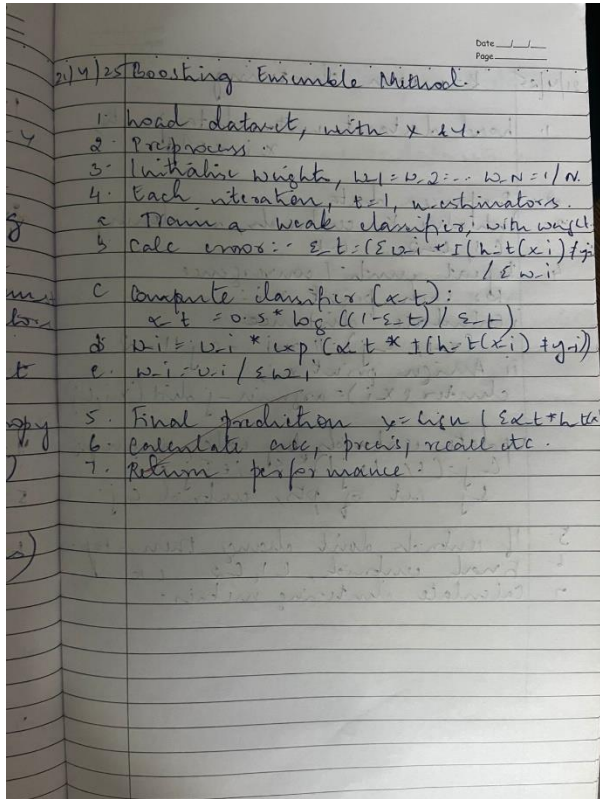 Date __/__/__
Page
21/4/25 Boosting Ensemble Method.
1. Load dataset, with x & y.
2. Preprocess.
3. Initialise weights, w_1 = w_2 = ... w_N = 1/N.
4. Each iteration, t=1, n_estimators.
a Train a weak classifier, with weight
b Calc error: ε_t = (Σw_i * I(h_t(x_i) ≠ y_i
/ Σw_i
c Compute classifier (α_t):
α_t = 0.5 * log ((1-ε_t) / ε_t)
d w_i = w_i * exp (α_t * I(h_t(x_i) ≠ y_i))
e. w_i = w_i / Σw_i
5. Final prediction y = sign (Σα_t * h_t(x
6. Calculate acc, precis, recall etc.
7. Return performance.